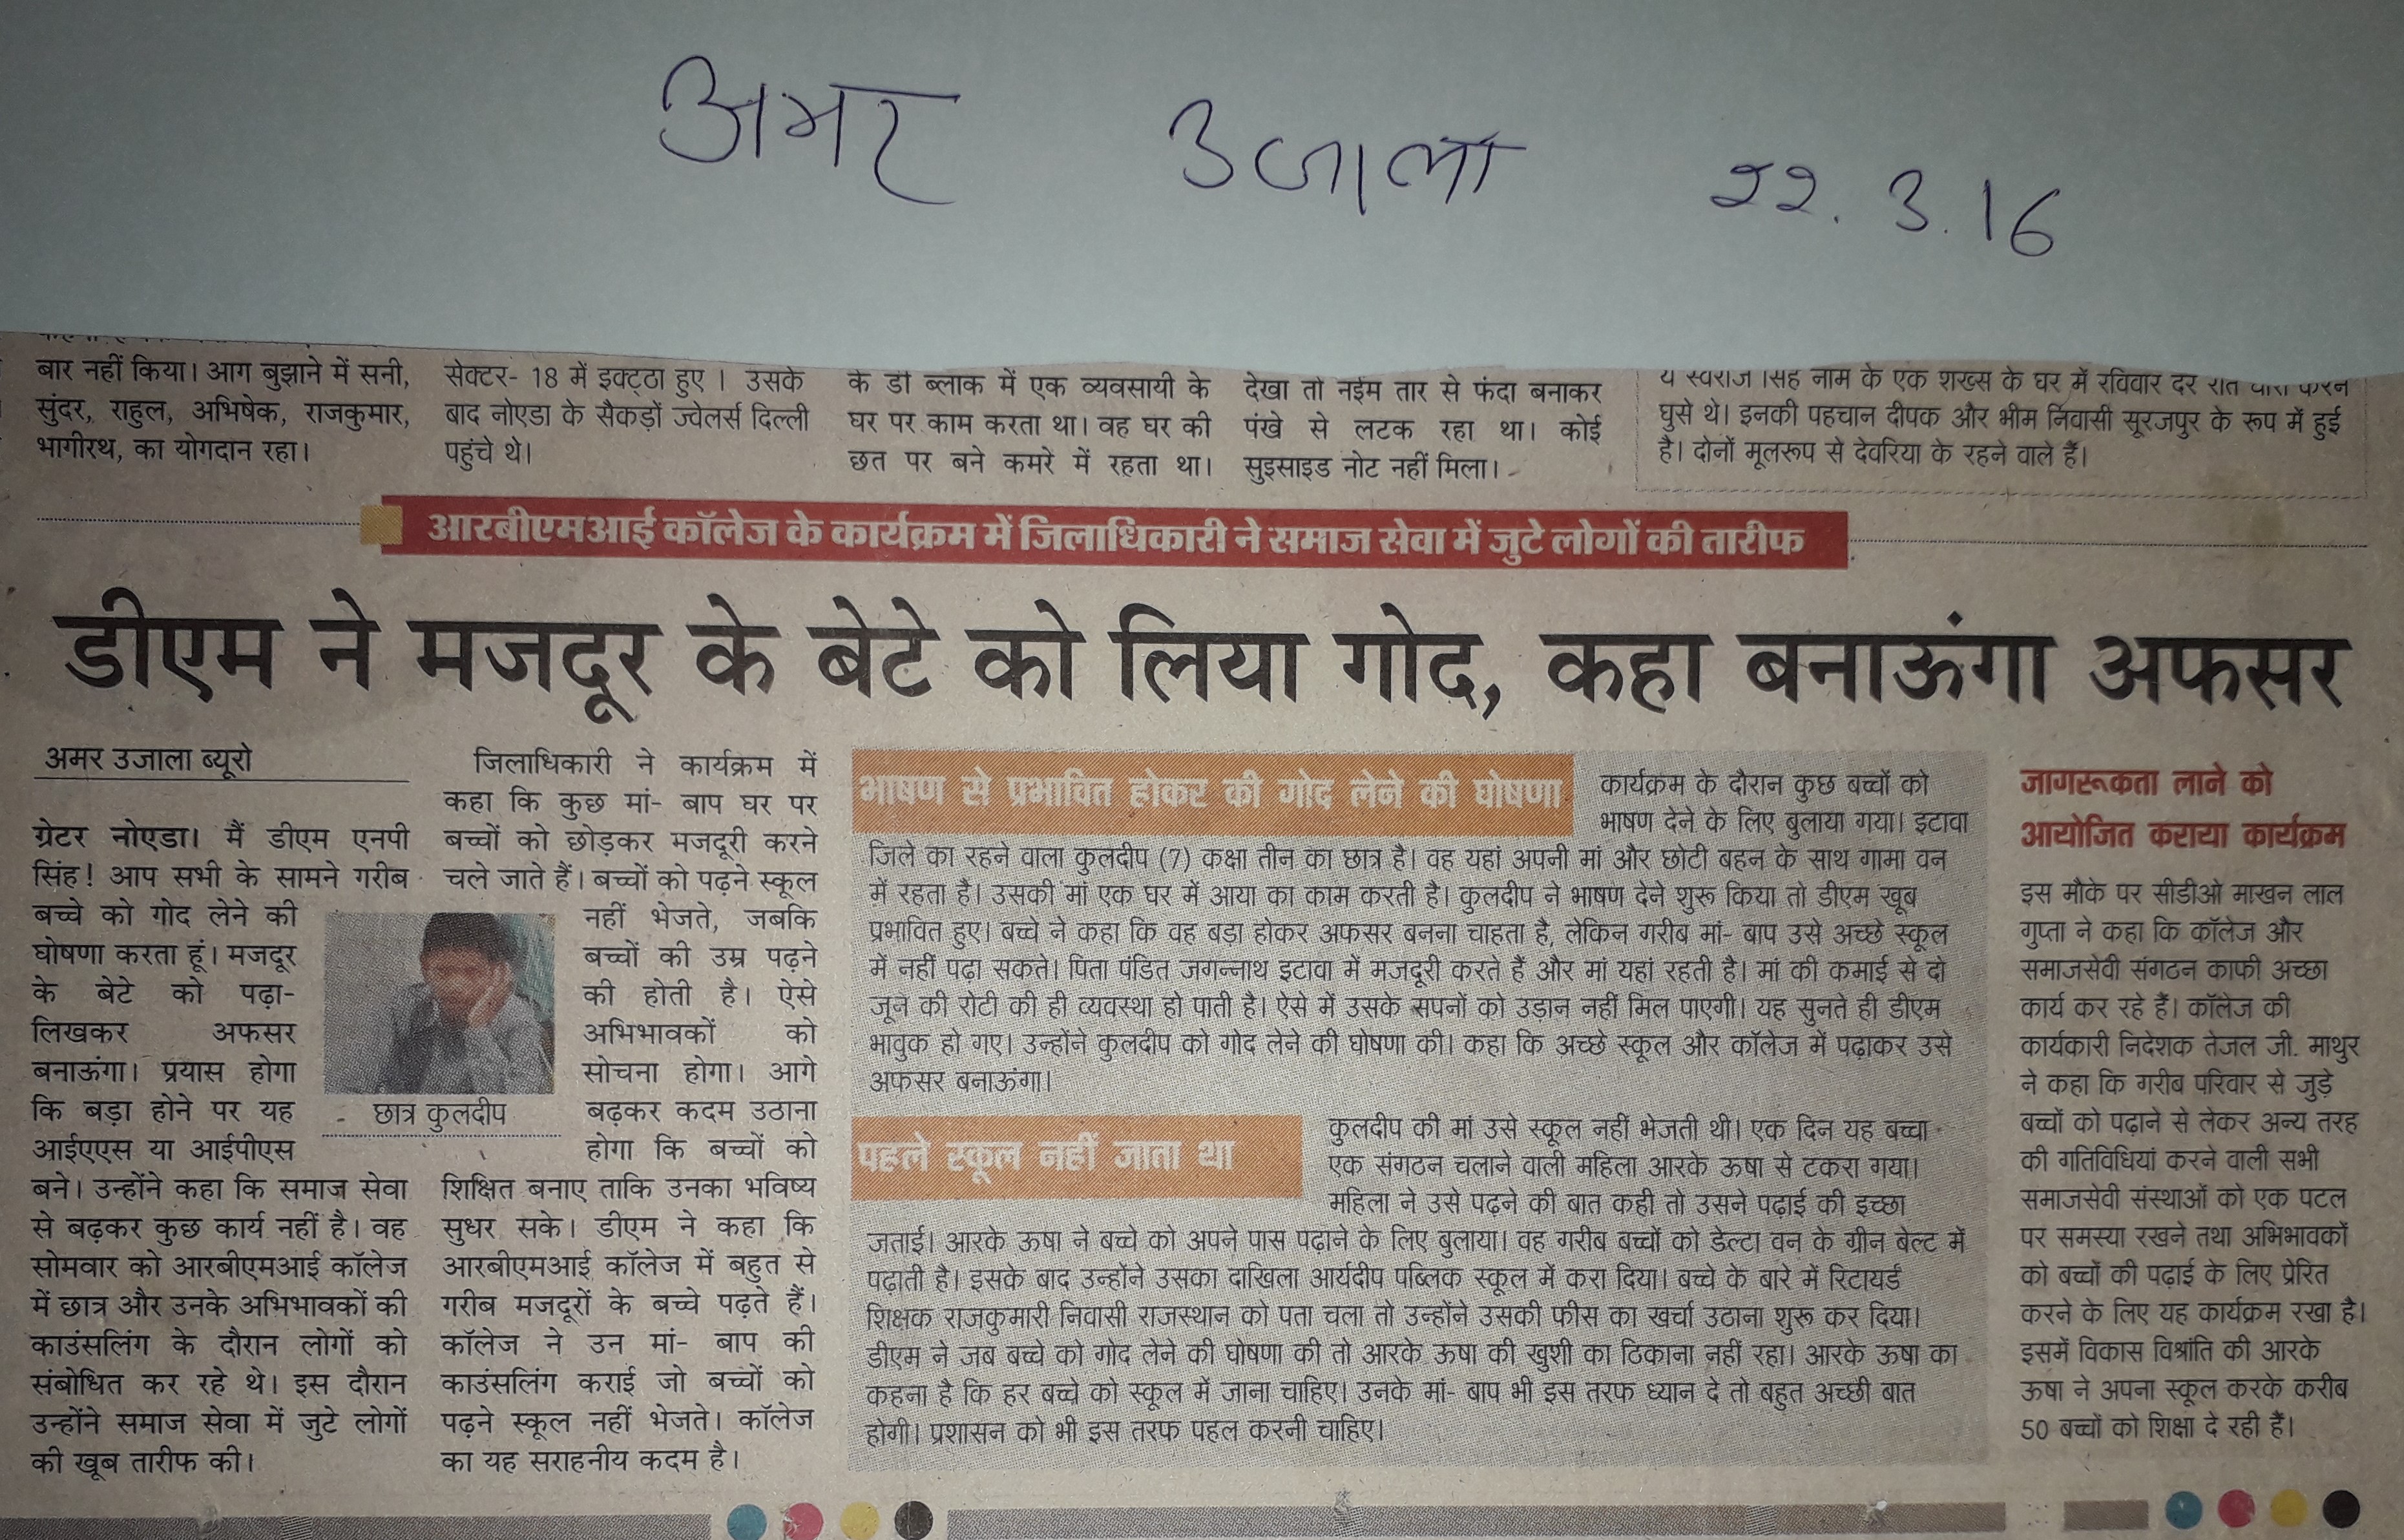 अमर उजाला २२.3.16
बार नहीं किया। आग बुझाने में सनी,
सुंदर, राहुल, अभिषेक, राजकुमार,
भागीरथ, का योगदान रहा।
सेक्टर- 18 में इक्ट्ठा हुए । उसके
बाद नोएडा के सैकड़ों ज्वेलर्स दिल्ली
पहुंचे थे।
के डी ब्लाक में एक व्यवसायी के
घर पर काम करता था। वह घर की
छत पर बने कमरे में रहता था।
देखा तो नईम तार से फंदा बनाकर
पंखे से लटक रहा था। कोई
सुइसाइड नोट नहीं मिला।
ये स्वराज सिंह नाम के एक शख्स के घर में रविवार देर रात चोरी करने
घुसे थे। इनकी पहचान दीपक और भीम निवासी सूरजपुर के रूप में हुई
है। दोनों मूलरूप से देवरिया के रहने वाले हैं।
आरबीएमआई कॉलेज के कार्यक्रम में जिलाधिकारी ने समाज सेवा में जुटे लोगों की तारीफ
डीएम ने मजदूर के बेटे को लिया गोद, कहा बनाऊंगा अफसर
अमर उजाला ब्यूरो
ग्रेटर नोएडा। मैं डीएम एनपी
सिंह! आप सभी के सामने गरीब
बच्चे को गोद लेने की
घोषणा करता हूं। मजदूर
के बेटे को पढ़ा-
लिखकर अफसर
बनाऊंगा। प्रयास होगा
कि बड़ा होने पर यह
आईएएस या आईपीएस
बने। उन्होंने कहा कि समाज सेवा
से बढ़कर कुछ कार्य नहीं है। वह
सोमवार को आरबीएमआई कॉलेज
में छात्र और उनके अभिभावकों की
काउंसलिंग के दौरान लोगों को
संबोधित कर रहे थे। इस दौरान
उन्होंने समाज सेवा में जुटे लोगों
की खूब तारीफ की।
छात्र कुलदीप
जिलाधिकारी ने कार्यक्रम में
कहा कि कुछ मां- बाप घर पर
बच्चों को छोड़कर मजदूरी करने
चले जाते हैं। बच्चों को पढ़ने स्कूल
नहीं भेजते, जबकि
बच्चों की उम्र पढ़ने
की होती है। ऐसे
अभिभावकों को
सोचना होगा। आगे
बढ़कर कदम उठाना
होगा कि बच्चों को
शिक्षित बनाए ताकि उनका भविष्य
सुधर सके। डीएम ने कहा कि
आरबीएमआई कॉलेज में बहुत से
गरीब मजदूरों के बच्चे पढ़ते हैं।
कॉलेज ने उन मां- बाप की
काउंसलिंग कराई जो बच्चों को
पढ़ने स्कूल नहीं भेजते। कॉलेज
का यह सराहनीय कदम है।
भाषण से प्रभावित होकर की गोद लेने की घोषणा
कार्यक्रम के दौरान कुछ बच्चों को
भाषण देने के लिए बुलाया गया। इटावा
जिले का रहने वाला कुलदीप (7) कक्षा तीन का छात्र है। वह यहां अपनी मां और छोटी बहन के साथ गामा वन
में रहता है। उसकी मां एक घर में आया का काम करती है। कुलदीप ने भाषण देने शुरू किया तो डीएम खूब
प्रभावित हुए। बच्चे ने कहा कि वह बड़ा होकर अफसर बनना चाहता है, लेकिन गरीब मां- बाप उसे अच्छे स्कूल
में नहीं पढ़ा सकते। पिता पंडित जगन्नाथ इटावा में मजदूरी करते हैं और मां यहां रहती है। मां की कमाई से दो
जून की रोटी की ही व्यवस्था हो पाती है। ऐसे में उसके सपनों को उड़ान नहीं मिल पाएगी। यह सुनते ही डीएम
भावुक हो गए। उन्होंने कुलदीप को गोद लेने की घोषणा की। कहा कि अच्छे स्कूल और कॉलेज में पढ़ाकर उसे
अफसर बनाऊंगा।
पहले स्कूल नहीं जाता था
कुलदीप की मां उसे स्कूल नहीं भेजती थी। एक दिन यह बच्चा
एक संगठन चलाने वाली महिला आरके ऊषा से टकरा गया।
महिला ने उसे पढ़ने की बात कही तो उसने पढ़ाई की इच्छा
जताई। आरके ऊषा ने बच्चे को अपने पास पढ़ाने के लिए बुलाया। वह गरीब बच्चों को डेल्टा वन के ग्रीन बेल्ट में
पढ़ाती है। इसके बाद उन्होंने उसका दाखिला आर्यदीप पब्लिक स्कूल में करा दिया। बच्चे के बारे में रिटायर्ड
शिक्षक राजकुमारी निवासी राजस्थान को पता चला तो उन्होंने उसकी फीस का खर्चा उठाना शुरू कर दिया।
डीएम ने जब बच्चे को गोद लेने की घोषणा की तो आरके ऊषा की खुशी का ठिकाना नहीं रहा। आरके ऊषा का
कहना है कि हर बच्चे को स्कूल में जाना चाहिए। उनके मां- बाप भी इस तरफ ध्यान दे तो बहुत अच्छी बात
होगी। प्रशासन को भी इस तरफ पहल करनी चाहिए।
जागरूकता लाने को
आयोजित कराया कार्यक्रम
इस मौके पर सीडीओ माखन लाल
गुप्ता ने कहा कि कॉलेज और
समाजसेवी संगठन काफी अच्छा
कार्य कर रहे हैं। कॉलेज की
कार्यकारी निदेशक तेजल जी. माथुर
ने कहा कि गरीब परिवार से जुड़े
बच्चों को पढ़ाने से लेकर अन्य तरह
की गतिविधियां करने वाली सभी
समाजसेवी संस्थाओं को एक पटल
पर समस्या रखने तथा अभिभावकों
को बच्चों की पढ़ाई के लिए प्रेरित
करने के लिए यह कार्यक्रम रखा है।
इसमें विकास विश्रांति की आरके
ऊषा ने अपना स्कूल करके करीब
50 बच्चों को शिक्षा दे रही हैं।